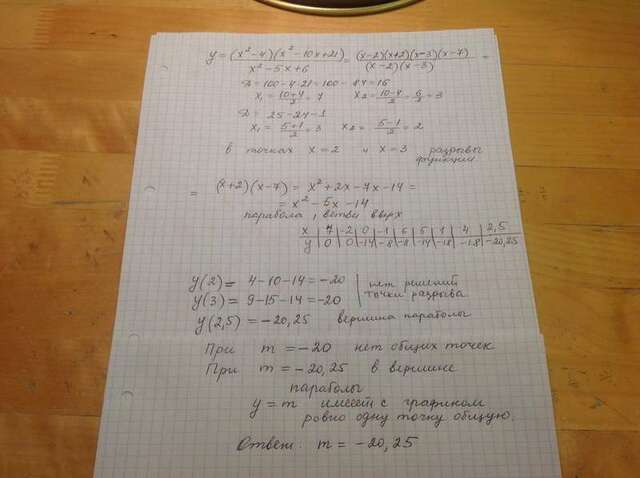 y = (x² - 4)(x² - 10x + 21) / (x² - 5x + 6) = (x-2)(x+2)(x-3)(x-7) / (x-2)(x-3) =
D = 100 - 4·21 = 100 - 84 = 16
x₁ = (10+4)/2 = 7 x₂ = (10-4)/2 = 6/2 = 3
D = 25 - 24 = 1
x₁ = (5+1)/2 = 3 x₂ = (5-1)/2 = 2
в точках x = 2 и x = 3 разрывы
функции.
= (x+2)(x-7) = x² + 2x - 7x - 14 =
= x² - 5x - 14
парабола, ветви вверх
x | 7 | -2 | 0 | -1 | 6 | 5 | 1 | 4 | 2,5
y | 0 | 0 | -14 | -8 | -8 | -14 | -18 | -18 | -20,25
y(2) = 4 - 10 - 14 = -20 | нет решений
y(3) = 9 - 15 - 14 = -20 | точки разрыва
y(2,5) = -20,25 вершина параболы
При m = -20 нет общих точек
При m = -20,25 в вершине
параболы
y = m имеет с графиком
ровно одну точку общую.
Ответ: m = -20,25